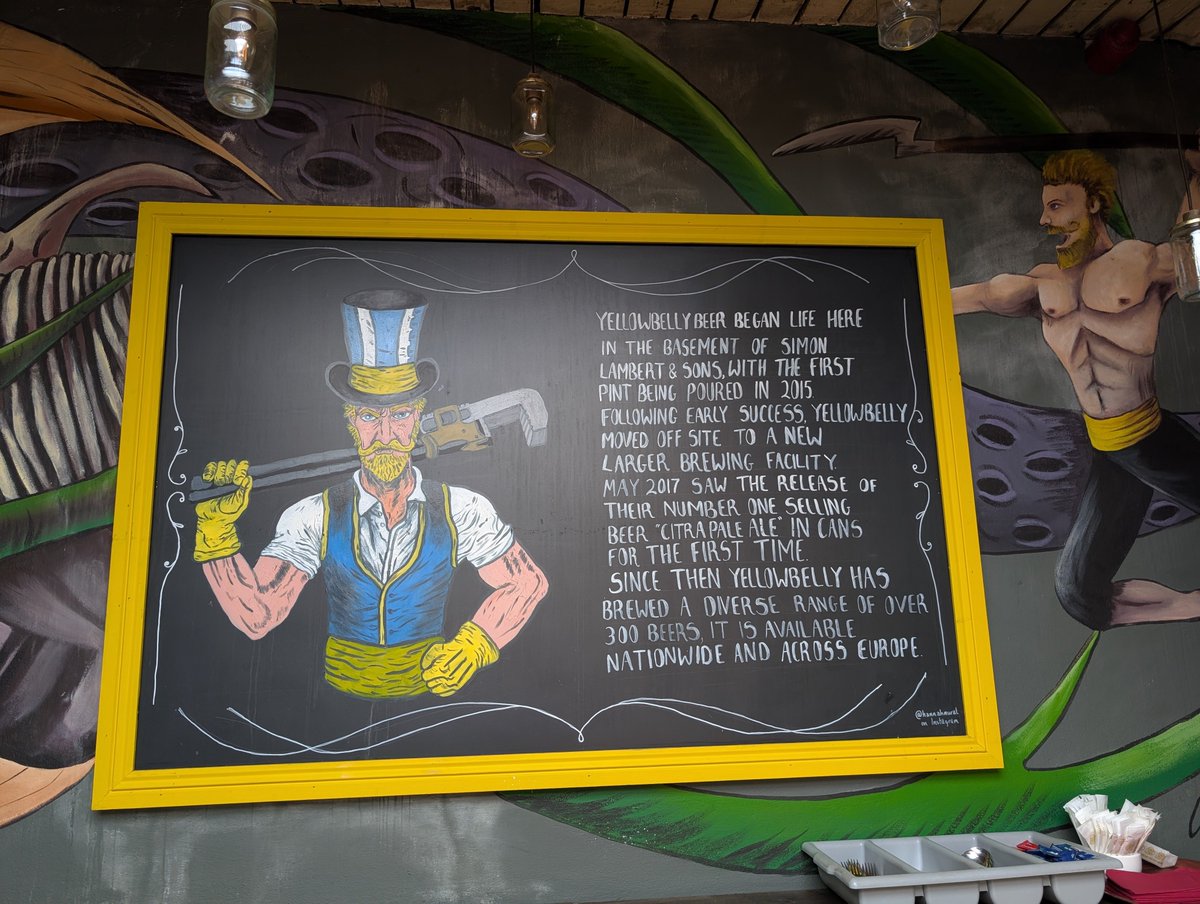 YELLOWBELLY BEER BEGAN LIFE HERE
IN THE BASEMENT OF SIMON
LAMBERT & SONS, WITH THE FIRST
PINT BEING POURED IN 2015.
FOLLOWING EARLY SUCCESS, YELLOWBELLY
MOVED OFF SITE TO A NEW
LARGER BREWING FACILITY.
MAY 2017 SAW THE RELEASE OF
THEIR NUMBER ONE SELLING
BEER "CITRA PALE ALE" IN CANS
FOR THE FIRST TIME.
SINCE THEN YELLOWBELLY HAS
BREWED A DIVERSE RANGE OF OVER
300 BEERS, IT IS AVAILABLE
NATIONWIDE AND ACROSS EUROPE.
@hannahmurel
on Instagram